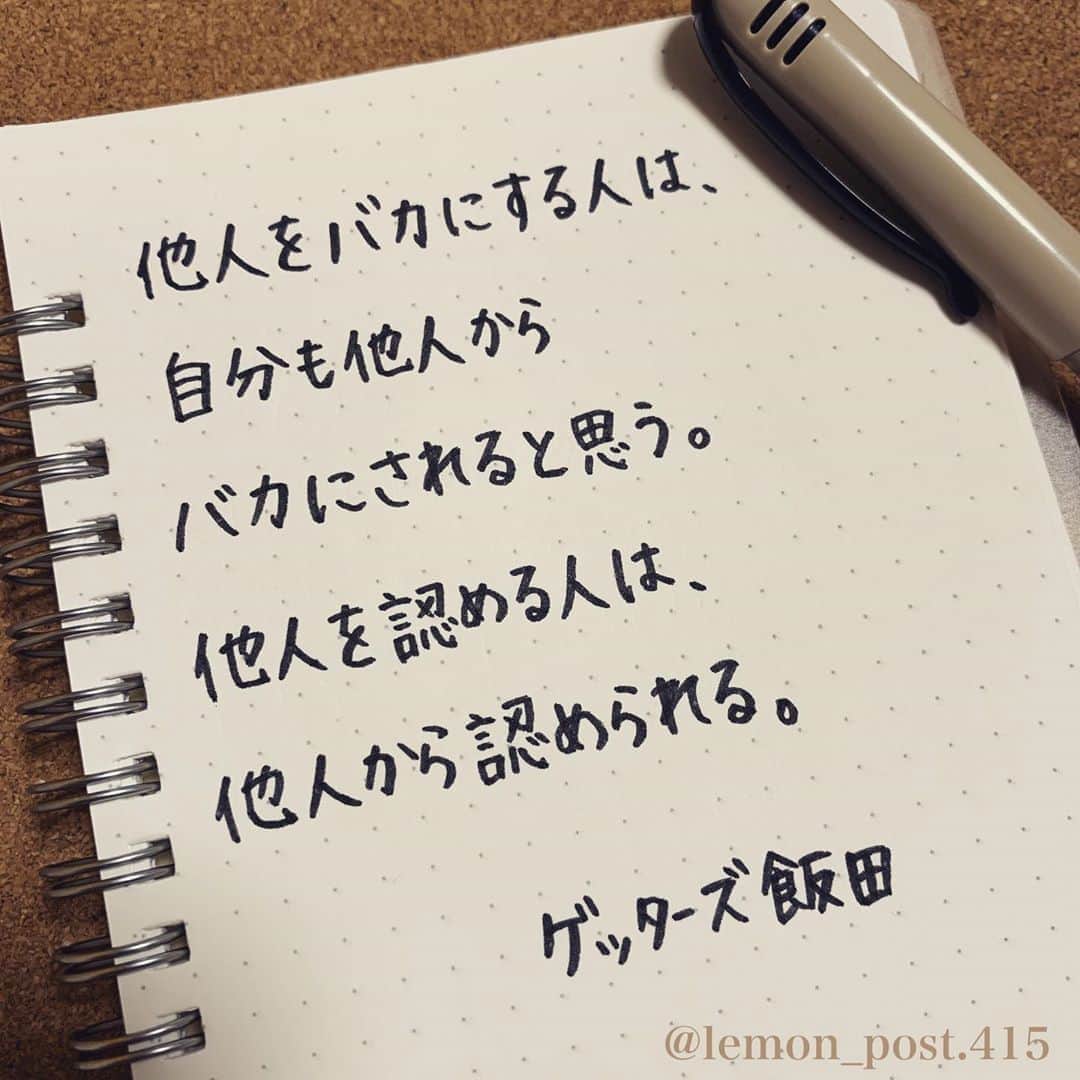 他人をバカにする人は、
自分も他人から
バカにされると思う。
他人を認める人は、
他人から認められる。
ゲッターズ飯田
@lemon_post.415